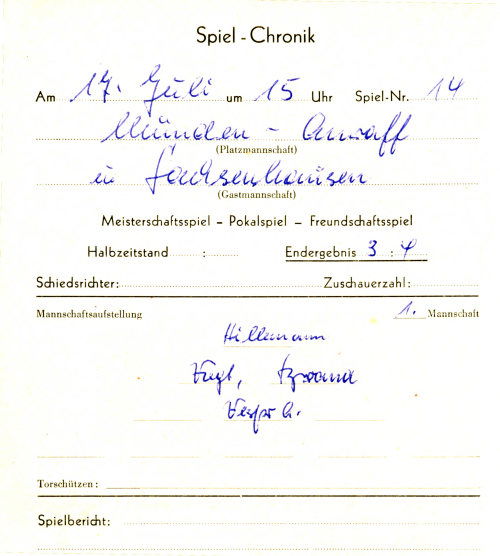 Spiel - Chronik
Am 17. Juli um 15 Uhr Spiel-Nr. 14
Münden - Anraff
(Platzmannschaft)
in Sachsenhausen
(Gastmannschaft)
Meisterschaftsspiel - Pokalspiel - Freundschaftsspiel
Halbzeitstand : Endergebnis 3 : 4
Schiedsrichter: Zuschauerzahl:
Mannschaftsaufstellung 1. Mannschaft
Hillemann
Vogt,
Torschützen:
Spielbericht: